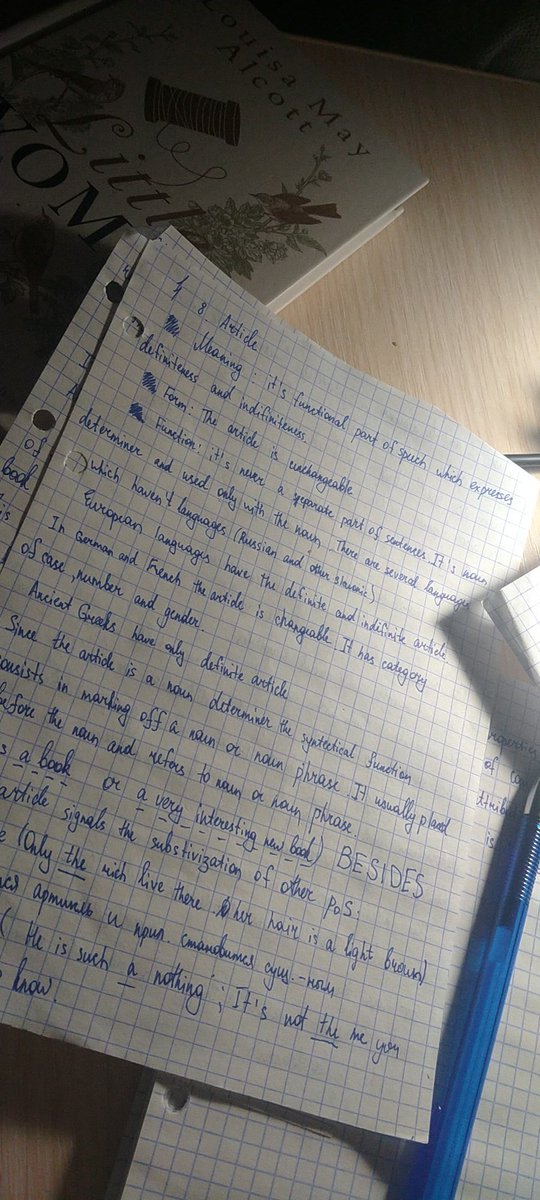 Louisa May
Alcott
Little
WOM
§ 8 Article
Meaning: it's functional part of speech which expresses
definiteness and indifiniteness
Form: The article is unchangeable
Function: it's never a separate part of sentences. It's noun
determiner and used only with the noun. There are several languages
which haven't languages (Russian and other slavonic)
European languages have the definite and indifinite article
In German and French the article is changeable. It has category
of case, number and gender.
Ancient Greeks have only definite article
Since the article is a noun determiner the syntectical function
consists in marking off a noun or noun phrase. It usually placed
before the noun and refers to noun or noun phrase.
a book or a very interesting new book) BESIDES
article signals the substivization of other PoS:
(Only the rich live there her hair is a light brown)
артикль и прил. становится сущ.-ным
(He is such a nothing; It's not the me you
know
of
book
properties
of
is